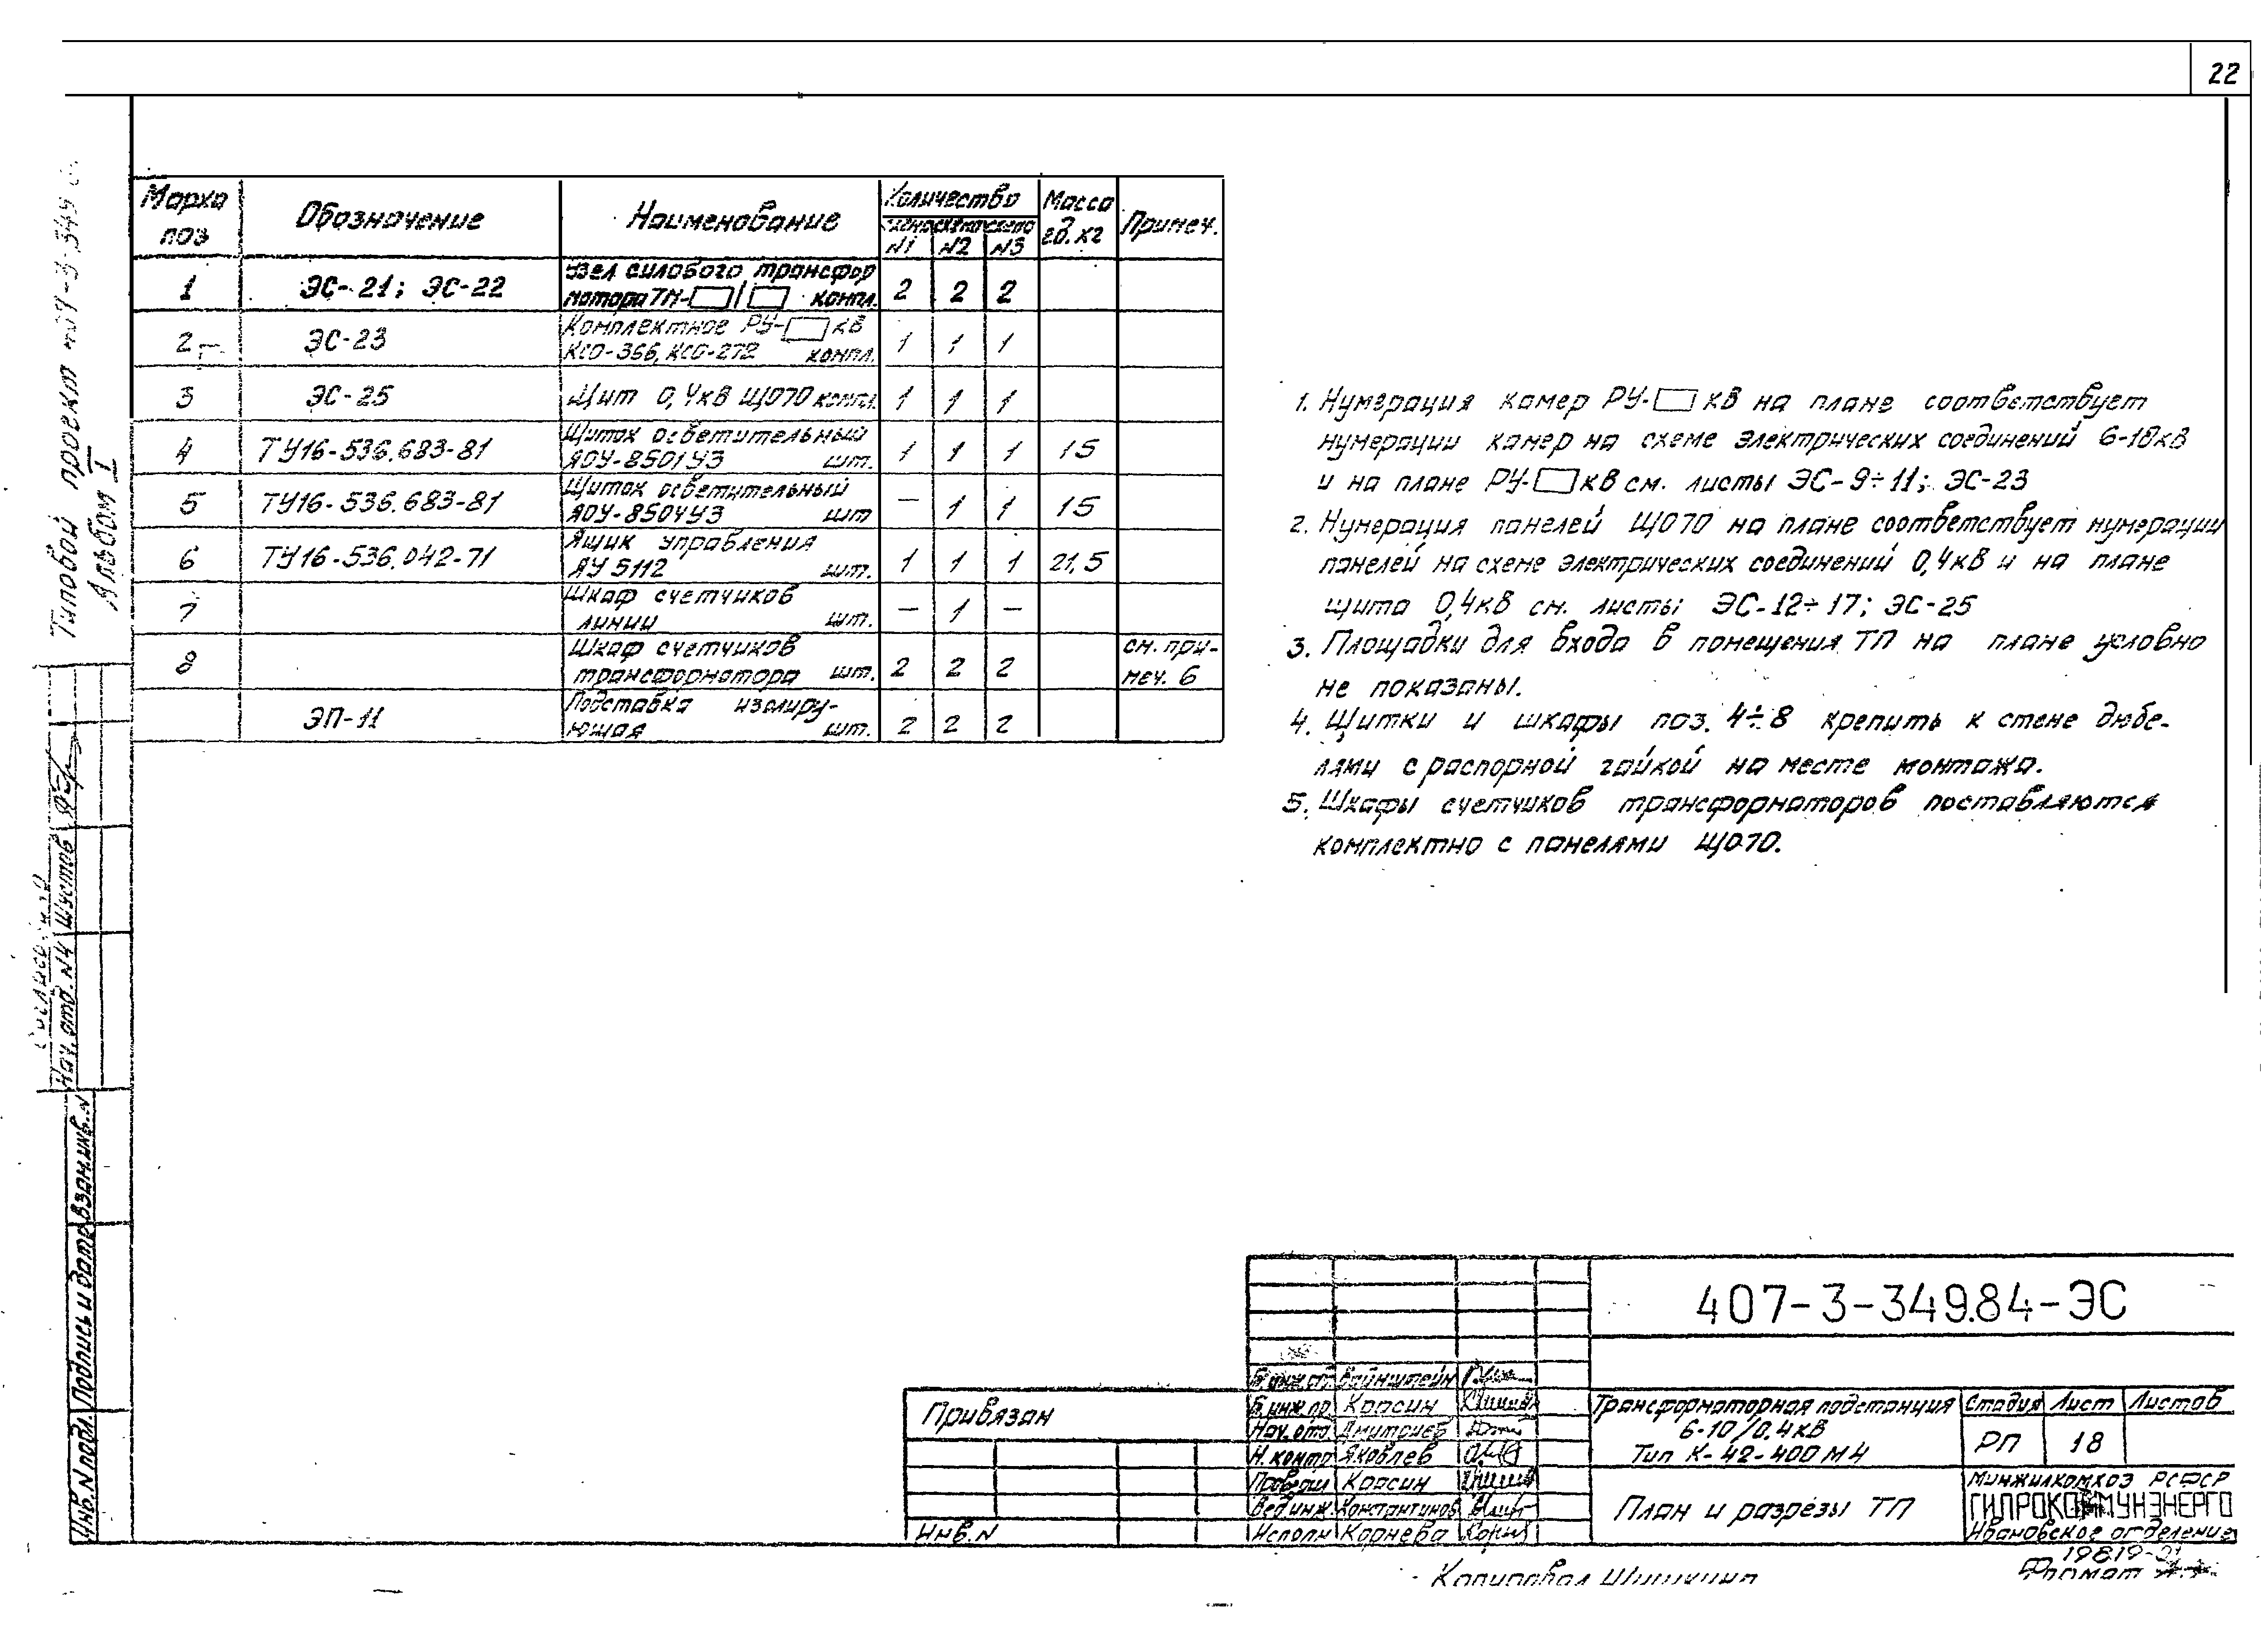 22
Типовой проект 407-3-349
Альбом I
Марка поз
Обозначение
Наименование
Количество
схема N1
схема N2
схема N3
Масса ед. кг
Примеч.
1 ЭС-21; ЭС-22 Узел силового трансфор
матора ТМ-□/□ компл. 2 2 2
2 ЭС-23 Комплектное РУ-□кВ
КСО-366, КСО-272 компл. 1 1 1
3 ЭС-25 Щит 0,4кВ ЩО70 компл. 1 1 1
4 ТУ16-536.683-81 Щиток осветительный
ЯОУ-8501У3 шт. 1 1 1 15
5 ТУ16-536.683-81 Щиток осветительный
ЯОУ-8504У3 шт — 1 1 15
6 ТУ16-536.042-71 Ящик управления
ЯУ 5112 шт. 1 1 1 21,5
7 Шкаф счетчиков
линии шт. — 1 —
8 Шкаф счетчиков см. при-
трансформатора шт. 2 2 2 меч. 6
ЭП-11 Подставка изолиру-
ющая шт. 2 2 2
1. Нумерация камер РУ-□кВ на плане соответствует
нумерации камер на схеме электрических соединений 6-10кВ
и на плане РУ-□кВ см. листы ЭС-9÷11; ЭС-23
2. Нумерация панелей ЩО70 на плане соответствует нумерации
панелей на схеме электрических соединений 0,4кВ и на плане
щита 0,4кВ см. листы ЭС-12÷17; ЭС-25
3. Площадки для входа в помещения ТП на плане условно
не показаны.
4. Щитки и шкафы поз. 4÷8 крепить к стене дюбе-
лями с распорной гайкой на месте монтажа.
5. Шкафы счетчиков трансформаторов поставляются
комплектно с панелями ЩО70.
Нач. отд. N4 Шустов
Инв. N подл. Подпись и дата Взам. инв. N
407-3-349.84-ЭС
Вайнштейн
Гл. инж. пр. Красин
Нач. отд. Дмитриев
Н. контр Яковлев
Проверил Красин
Вед. инж. Константинов
Исполн Корнева
Привязан
Инв. N
Трансформаторная подстанция
6-10/0,4кВ
Тип К-42-400 М4
Стадия Лист Листов
РП 18
План и разрезы ТП
Минжилкомхоз РСФСР
ГИПРОКОММУНЭНЕРГО
Ивановское отделение
19819-01
Копировал Шишкина
Формат